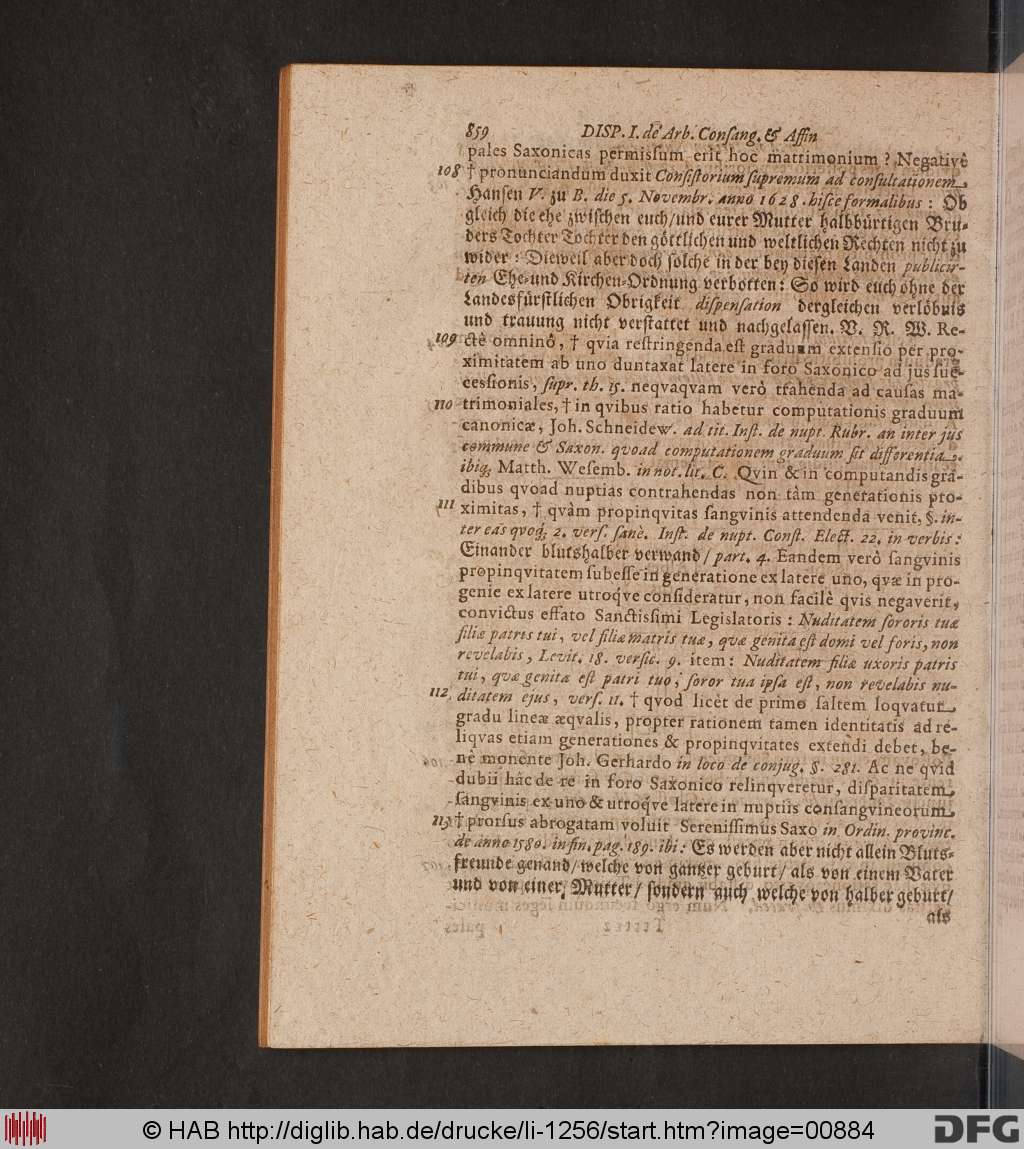 859 DISP. I. de Arb. Conſang. & Affin
pales Saxonicas permiſſum erit hoc matrimonium? Negativè
108 † pronunciandum duxit Conſiſtorium ſupremum ad conſultationem
Hanſen V. zu B. die 5. Novembr. anno 1628. hiſce formalibus: Ob
gleich die ehe zwiſchen euch/und eurer Mutter halbbürtigen Bru-
ders Tochter Tochter den göttlichen und weltlichen Rechten nicht zu
wider: Dieweil aber doch ſolche in der bey dieſen Landen publicir-
ten Ehe-und Kirchen-Ordnung verbotten: So wird euch ohne der
Landesfürſtlichen Obrigkeit diſpenſation dergleichen verlöbnis
und trauung nicht verſtattet und nachgelaſſen. V. R. W. Re-
109 ctè omninò, † qvia reſtringenda eſt graduum extenſio per pro-
ximitatem ab uno duntaxat latere in foro Saxonico ad jus ſuc-
ceſſionis, ſupr. th. 15. neqvaqvam verò trahenda ad cauſas ma-
110 trimoniales, † in qvibus ratio habetur computationis graduum
canonicæ, Joh. Schneidew. ad tit. Inſt. de nupt. Rubr. an inter jus
commune & Saxon. qvoad computationem graduum ſit differentia.
ibiq; Matth. Weſemb. in not. lit. C. Qvin & in computandis gra-
dibus qvoad nuptias contrahendas non tàm generationis pro-
111 ximitas, † qvàm propinqvitas ſangvinis attendenda venit, §. in-
ter eas qvoq; 2. verſ. ſanè. Inſt. de nupt. Conſt. Elect. 22. in verbis:
Einander blutshalber verwand/ part. 4. Eandem verò ſangvinis
propinqvitatem ſubeſſe in generatione ex latere uno, qvæ in pro-
genie ex latere utroqve conſideratur, non facilè qvis negaverit,
convictus effato Sanctiſſimi Legislatoris: Nuditatem ſororis tuæ
filiæ patris tui, vel filiæ matris tuæ, qvæ genita eſt domi vel foris, non
revelabis, Levit. 18. verſic. 9. item: Nuditatem filiæ uxoris patris
tui, qvæ genita eſt patri tuo, ſoror tua ipſa eſt, non revelabis nu-
112 ditatem ejus, verſ. 11. † qvod licèt de primo ſaltem loqvatur
gradu lineæ æqvalis, propter rationem tamen identitatis ad re-
liqvas etiam generationes & propinqvitates extendi debet, be-
nè monente Joh. Gerhardo in loco de conjug. §. 281. Ac ne qvid
dubii hâc de re in foro Saxonico relinqveretur, diſparitatem
ſangvinis ex uno & utroqve latere in nuptiis conſangvineorum
113 † prorſus abrogatam voluit Sereniſſimus Saxo in Ordin. provinc.
de anno 1580. in fin. pag. 189. ibi: Es werden aber nicht allein Bluts-
freunde genand/welche von gantzer geburt/ als von einem Vater
und von einer Mutter/ ſondern auch welche von halber geburt/
als
© HAB http://diglib.hab.de/drucke/li-1256/start.htm?image=00884
DFG